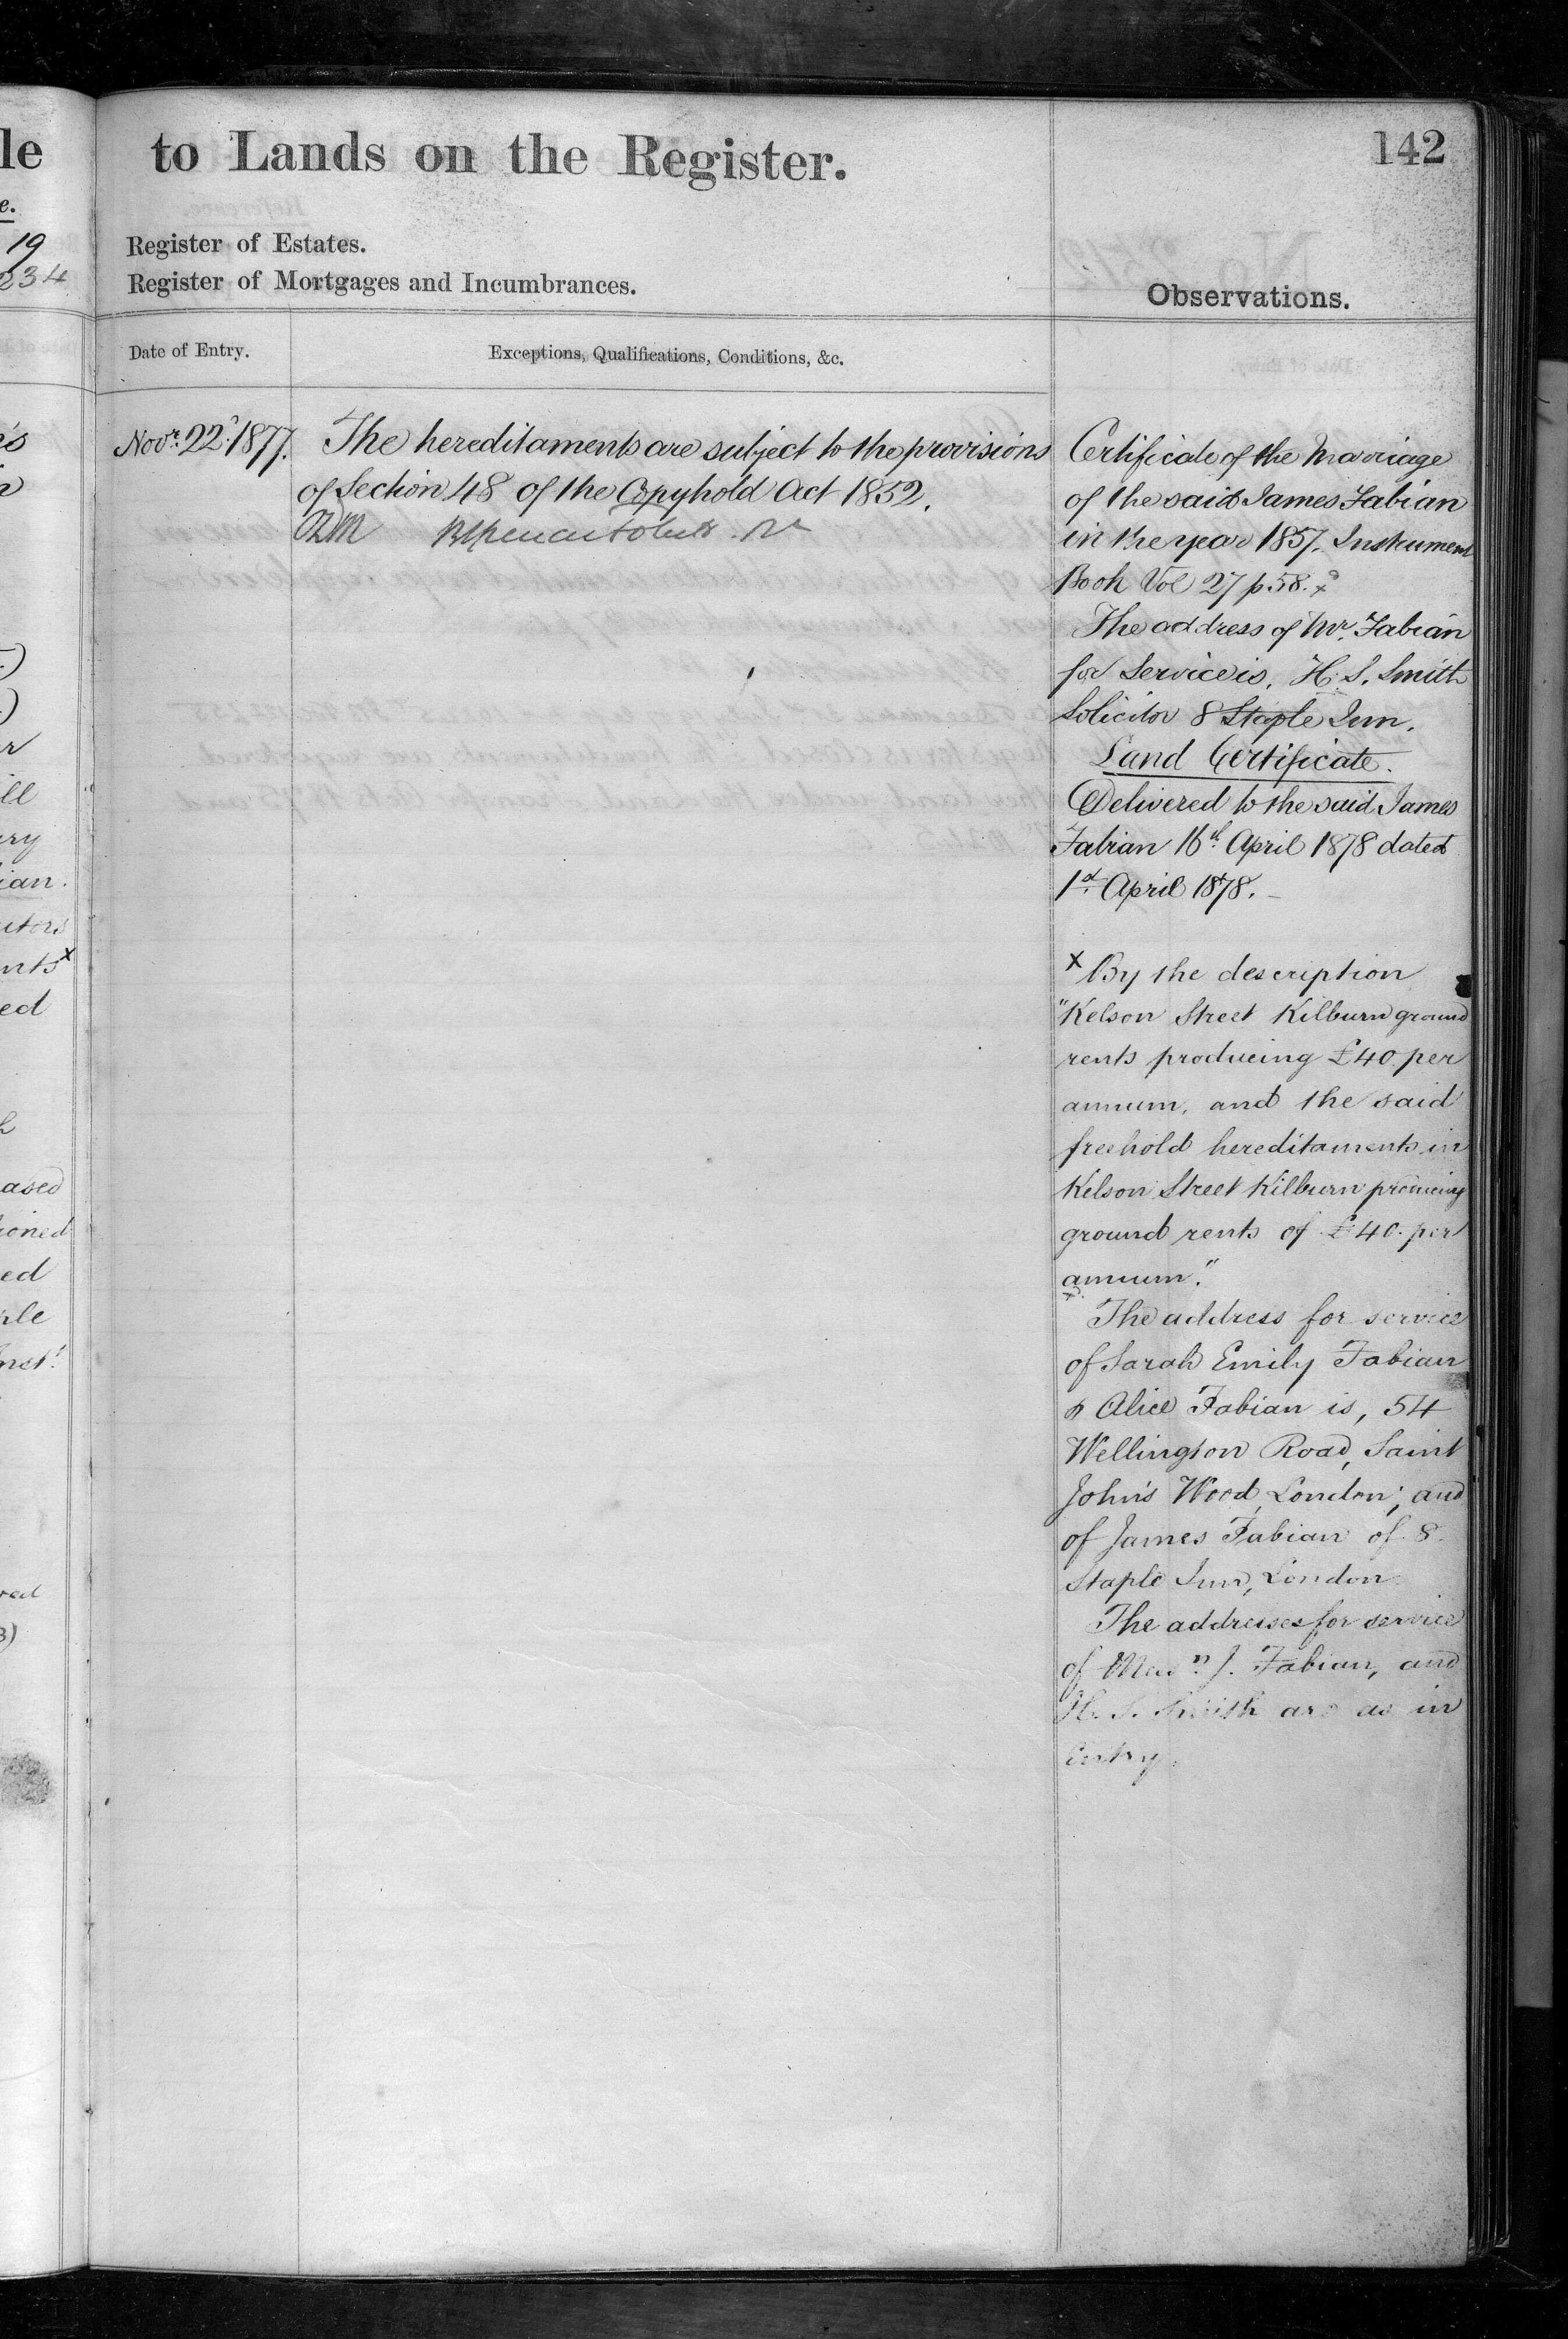 le
to Lands on the Register.
142
e.
19
234
Register of Estates.
Register of Mortgages and Incumbrances.
Observations.
Date of Entry.
Exceptions, Qualifications, Conditions, &c.
Novr. 22d. 1877.
The hereditaments are subject to the provisions
of Section 48 of the Copyhold Act 1852.
Certificate of the Marriage
of the said James Fabian
in the year 1857. Instrument
Book Vol 27 p 58. x
The address of Mr. Fabian
for Service is, H. S. Smith
Solicitor 8 Staple Inn.
Land Certificate.
Delivered to the said James
Fabian 16th. April 1878 dated
1st. April 1878. –
x By the description
"Kelson Street Kilburn ground
rents producing £40 per
annum, and the said
freehold hereditaments in
Kelson Street Kilburn producing
ground rents of £40. per
annum."
The address for service
of Sarah Emily Fabian
& Alice Fabian is, 54
Wellington Road, Saint
John's Wood, London; and
of James Fabian of 8.
Staple Inn, London
The addresses for service
of J. Fabian, and
H. S. Smith are as in
entry.
ill
ry
ian.
utors
nts x
ed
ased
ioned
ed
ple
Inst.
red
3)